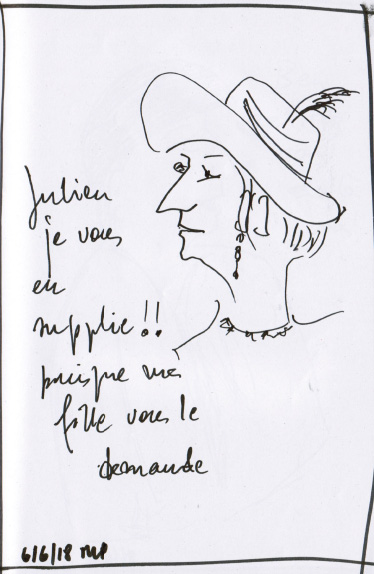 Julien
je vous
en
supplie !!
puisque ma
fille vous le
demande
6/6/18 mp